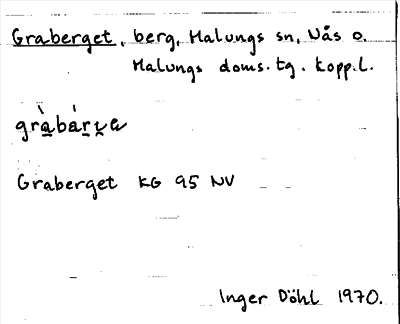 Graberget, berg, Malungs sn, Nås o.
Malungs doms.tg. Kopp.l.
Graberget KG 95 NV
Inger Döhl 1970.